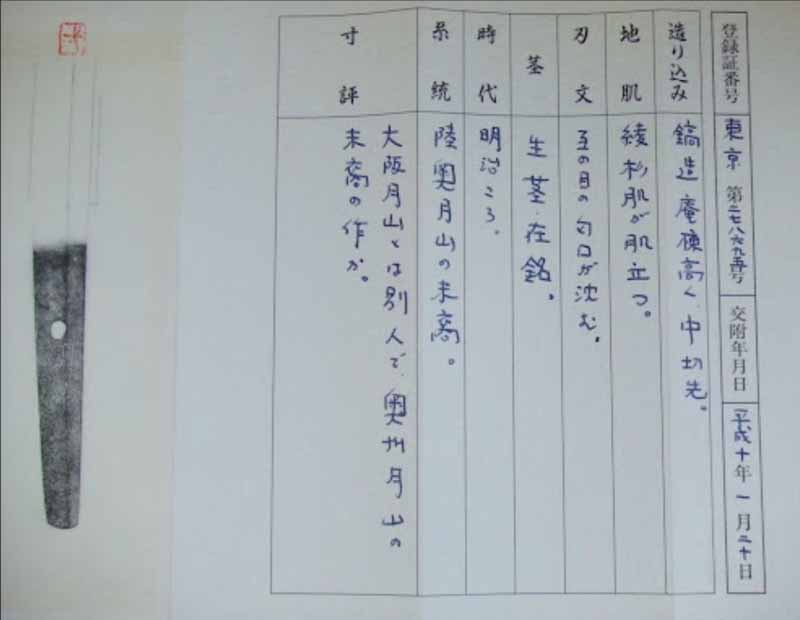 登録証番号 東京 第二七八六九五号 交附年月日 平成十年一月二十日
造り込み 鎬造 庵棟高く、中切先。
地肌 綾杉肌が肌立つ。
刃文 互の目の匂口が沈む。
茎 生茎、在銘。
時代 明治ころ。
系統 陸奥月山の末裔。
寸評 大阪月山とは別人で、奥州月山の
末裔の作か。